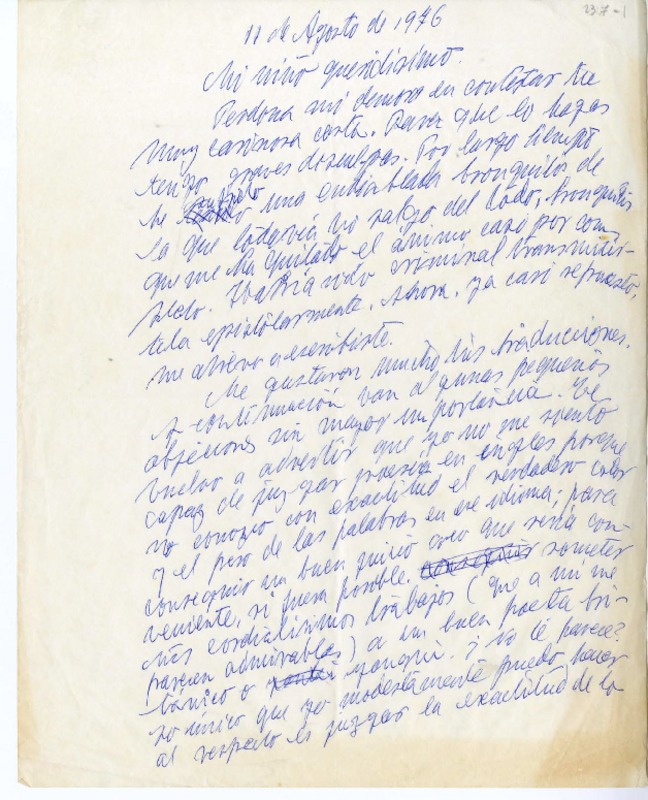 237-1
11 de Agosto de 1976
Mi niño queridísimo.
Perdona mi demora en contestar tu
muy cariñosa carta. Para que lo hagas
tengo graves disculpas. Por largo tiempo
he sufrido una endiablada bronquitis de
la que todavía no salgo del todo, bronquitis
que me ha quitado el ánimo casi por com-
pleto. Habría sido criminal transmitír-
tela epistolarmente. Ahora, ya casi repuesto,
me atrevo a escribirte.
Me gustaron mucho tus traducciones.
A continuación van algunas pequeñas
objeciones sin mayor importancia. Te
vuelvo a advertir que yo no me siento
capaz de juzgar poesía en inglés porque
no conozco con exactitud el verdadero color
y el peso de las palabras en ese idioma; para
conseguir un buen juicio creo que sería con-
veniente, si fuera posible, someter
tus cordialísimos trabajos (que a mí me
parecen admirables) a un buen poeta bri-
tánico o yanqui. ¿No te parece?
Lo único que yo modestamente puedo hacer
al respecto es juzgar la exactitud de lo